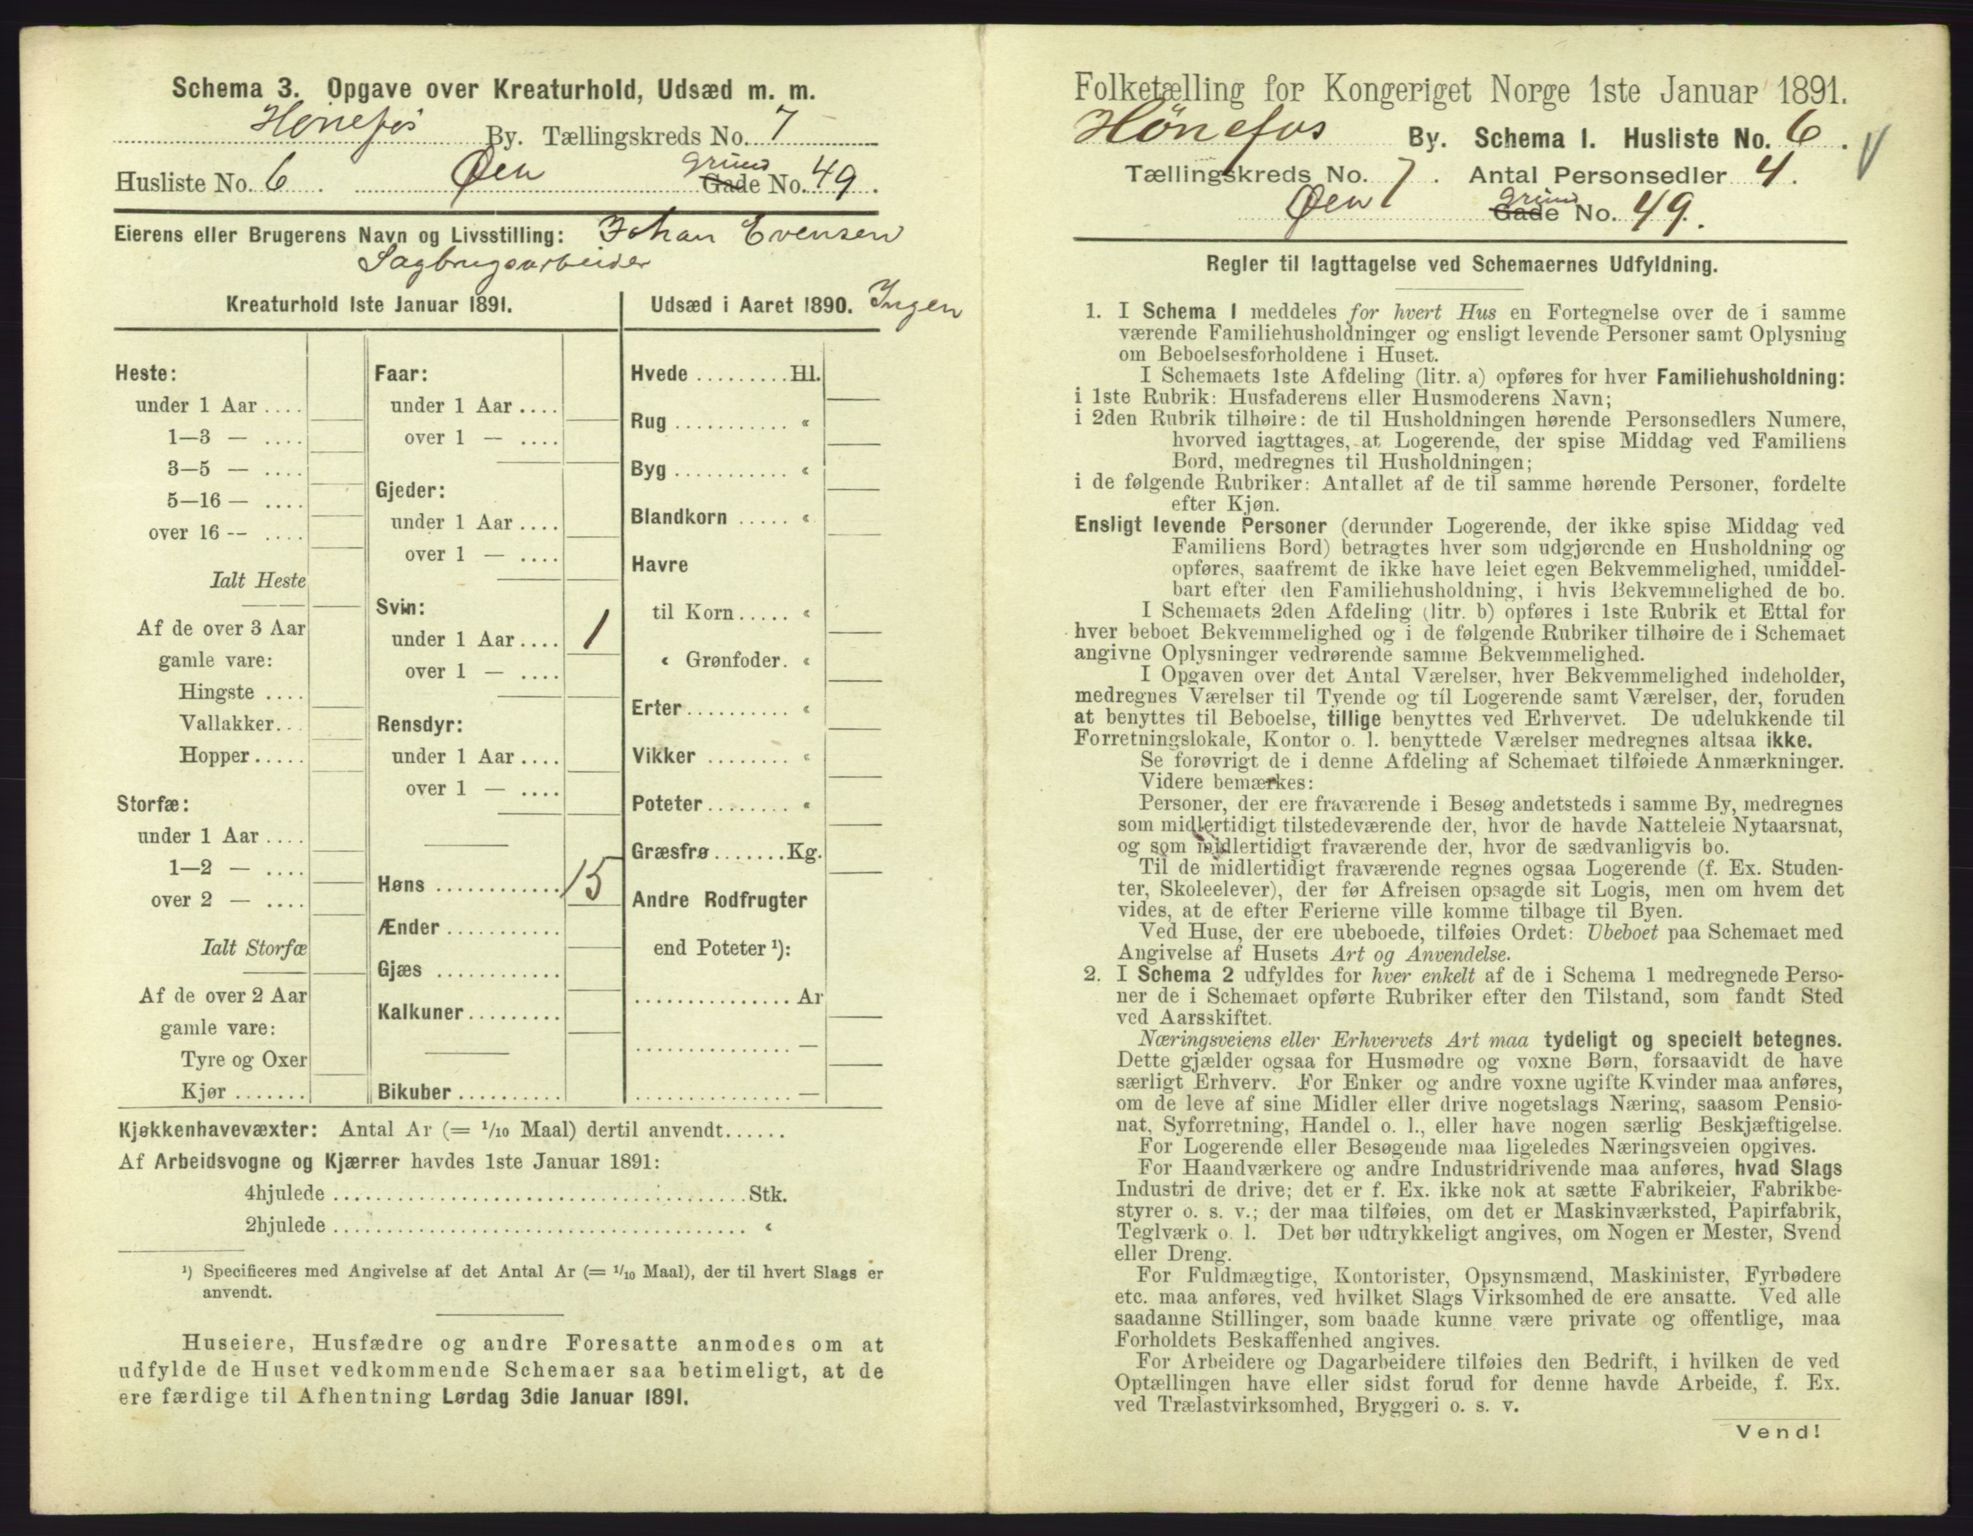 Schema 3. Opgave over Kreaturhold, Udsæd m. m.
Hønefos By. Tællingskreds No. 7
Husliste No. 6 . Øen Grund Gade No. 49 .
Eierens eller Brugerens Navn og Livsstilling: Johan Evensen
Sagbrugsarbeider
Kreaturhold 1ste Januar 1891.
Heste:
under 1 Aar ....
1—3 — ....
3—5 — ....
5—16 — ....
over 16 -- ....
Ialt Heste
Af de over 3 Aar
gamle vare:
Hingste ....
Vallakker...
Hopper.....
Storfæ:
under 1 Aar ....
1—2 — ....
over 2 — ....
Ialt Storfæ
Af de over 2 Aar
gamle vare:
Tyre og Oxer
Kjør .......
Faar:
under 1 Aar ....
over 1 — ....
Gjeder:
under 1 Aar ....
over 1 — ....
Svin:
under 1 Aar .... 1
over 1 — ....
Rensdyr:
under 1 Aar ....
over 1 — ....
Høns ............ 15
Ænder ...........
Gjæs ............
Kalkuner.........
Bikuber ..........
Udsæd i Aaret 1890. Ingen
Hvede .........Hl.
Rug ........... «
Byg ........... «
Blandkorn ..... «
Havre
til Korn ..... «
« Grønfoder. «
Erter.......... «
Vikker ........ «
Poteter........ «
Græsfrø.......Kg.
Andre Rodfrugter
end Poteter ¹):
............... Ar
............... —
............... —
Kjøkkenhavevæxter: Antal Ar (= 1/10 Maal) dertil anvendt......
Af Arbeidsvogne og Kjærrer havdes 1ste Januar 1891:
4hjulede ........................................Stk.
2hjulede ........................................ «
¹) Specificeres med Angivelse af det Antal Ar (= 1/10 Maal), der til hvert Slags er
anvendt.
Huseiere, Husfædre og andre Foresatte anmodes om at
udfylde de Huset vedkommende Schemaer saa betimeligt, at de
ere færdige til Afhentning Lørdag 3die Januar 1891.
Folketælling for Kongeriget Norge 1ste Januar 1891.
Hønefos By. Schema 1. Husliste No. 6 .
Tællingskreds No. 7 . Antal Personsedler 4 .
Øen 7 Grund Gade No. 49.
Regler til Iagttagelse ved Schemaernes Udfyldning.
1. I Schema 1 meddeles for hvert Hus en Fortegnelse over de i samme
værende Familiehusholdninger og ensligt levende Personer samt Oplysning
om Beboelsesforholdene i Huset.
I Schemaets 1ste Afdeling (litr. a) opføres for hver Familiehusholdning:
i 1ste Rubrik: Husfaderens eller Husmoderens Navn;
i 2den Rubrik tilhøire: de til Husholdningen hørende Personsedlers Numere,
hvorved iagttages, at Logerende, der spise Middag ved Familiens
Bord, medregnes til Husholdningen;
i de følgende Rubriker: Antallet af de til samme hørende Personer, fordelte
efter Kjøn.
Ensligt levende Personer (derunder Logerende, der ikke spise Middag ved
Familiens Bord) betragtes hver som udgjørende en Husholdning og
opføres, saafremt de ikke have leiet egen Bekvemmelighed, umiddel-
bart efter den Familiehusholdning, i hvis Bekvemmelighed de bo.
I Schemaets 2den Afdeling (litr. b) opføres i 1ste Rubrik et Ettal for
hver beboet Bekvemmelighed og i de følgende Rubriker tilhøire de i Schemaet
angivne Oplysninger vedrørende samme Bekvemmelighed.
I Opgaven over det Antal Værelser, hver Bekvemmelighed indeholder,
medregnes Værelser til Tyende og til Logerende samt Værelser, der, foruden
at benyttes til Beboelse, tillige benyttes ved Erhvervet. De udelukkende til
Forretningslokale, Kontor o. l. benyttede Værelser medregnes altsaa ikke.
Se forøvrigt de i denne Afdeling af Schemaet tilføiede Anmærkninger.
Videre bemærkes:
Personer, der ere fraværende i Besøg andetsteds i samme By, medregnes
som midlertidigt tilstedeværende der, hvor de havde Natteleie Nytaarsnat,
og som midlertidigt fraværende der, hvor de sædvanligvis bo.
Til de midlertidigt fraværende regnes ogsaa Logerende (f. Ex. Studen-
ter, Skoleelever), der før Afreisen opsagde sit Logis, men om hvem det
vides, at de efter Ferierne ville komme tilbage til Byen.
Ved Huse, der ere ubeboede, tilføies Ordet: Ubeboet paa Schemaet med
Angivelse af Husets Art og Anvendelse.
2. I Schema 2 udfyldes for hver enkelt af de i Schema 1 medregnede Perso-
ner de i Schemaet opførte Rubriker efter den Tilstand, som fandt Sted
ved Aarsskiftet.
Næringsveiens eller Erhvervets Art maa tydeligt og specielt betegnes.
Dette gjælder ogsaa for Husmødre og voxne Børn, forsaavidt de have
særligt Erhverv. For Enker og andre voxne ugifte Kvinder maa anføres,
om de leve af sine Midler eller drive nogetslags Næring, saasom Pensio-
nat, Syforretning, Handel o. l., eller have nogen særlig Beskjæftigelse.
For Logerende eller Besøgende maa ligeledes Næringsveien opgives.
For Haandværkere og andre Industridrivende maa anføres, hvad Slags
Industri de drive; det er f. Ex. ikke nok at sætte Fabrikeier, Fabrikbe-
styrer o. s. v.; der maa tilføies, om det er Maskinværksted, Papirfabrik,
Teglværk o. l. Det bør udtrykkeligt angives, om Nogen er Mester, Svend
eller Dreng.
For Fuldmægtige, Kontorister, Opsynsmænd, Maskinister, Fyrbødere
etc. maa anføres, ved hvilket Slags Virksomhed de ere ansatte. Ved alle
saadanne Stillinger, som baade kunne være private og offentlige, maa
Forholdets Beskaffenhed angives.
For Arbeidere og Dagarbeidere tilføies den Bedrift, i hvilken de ved
Optællingen have eller sidst forud for denne havde Arbeide, f. Ex.
ved Trælastvirksomhed, Bryggeri o. s. v.
Vend!